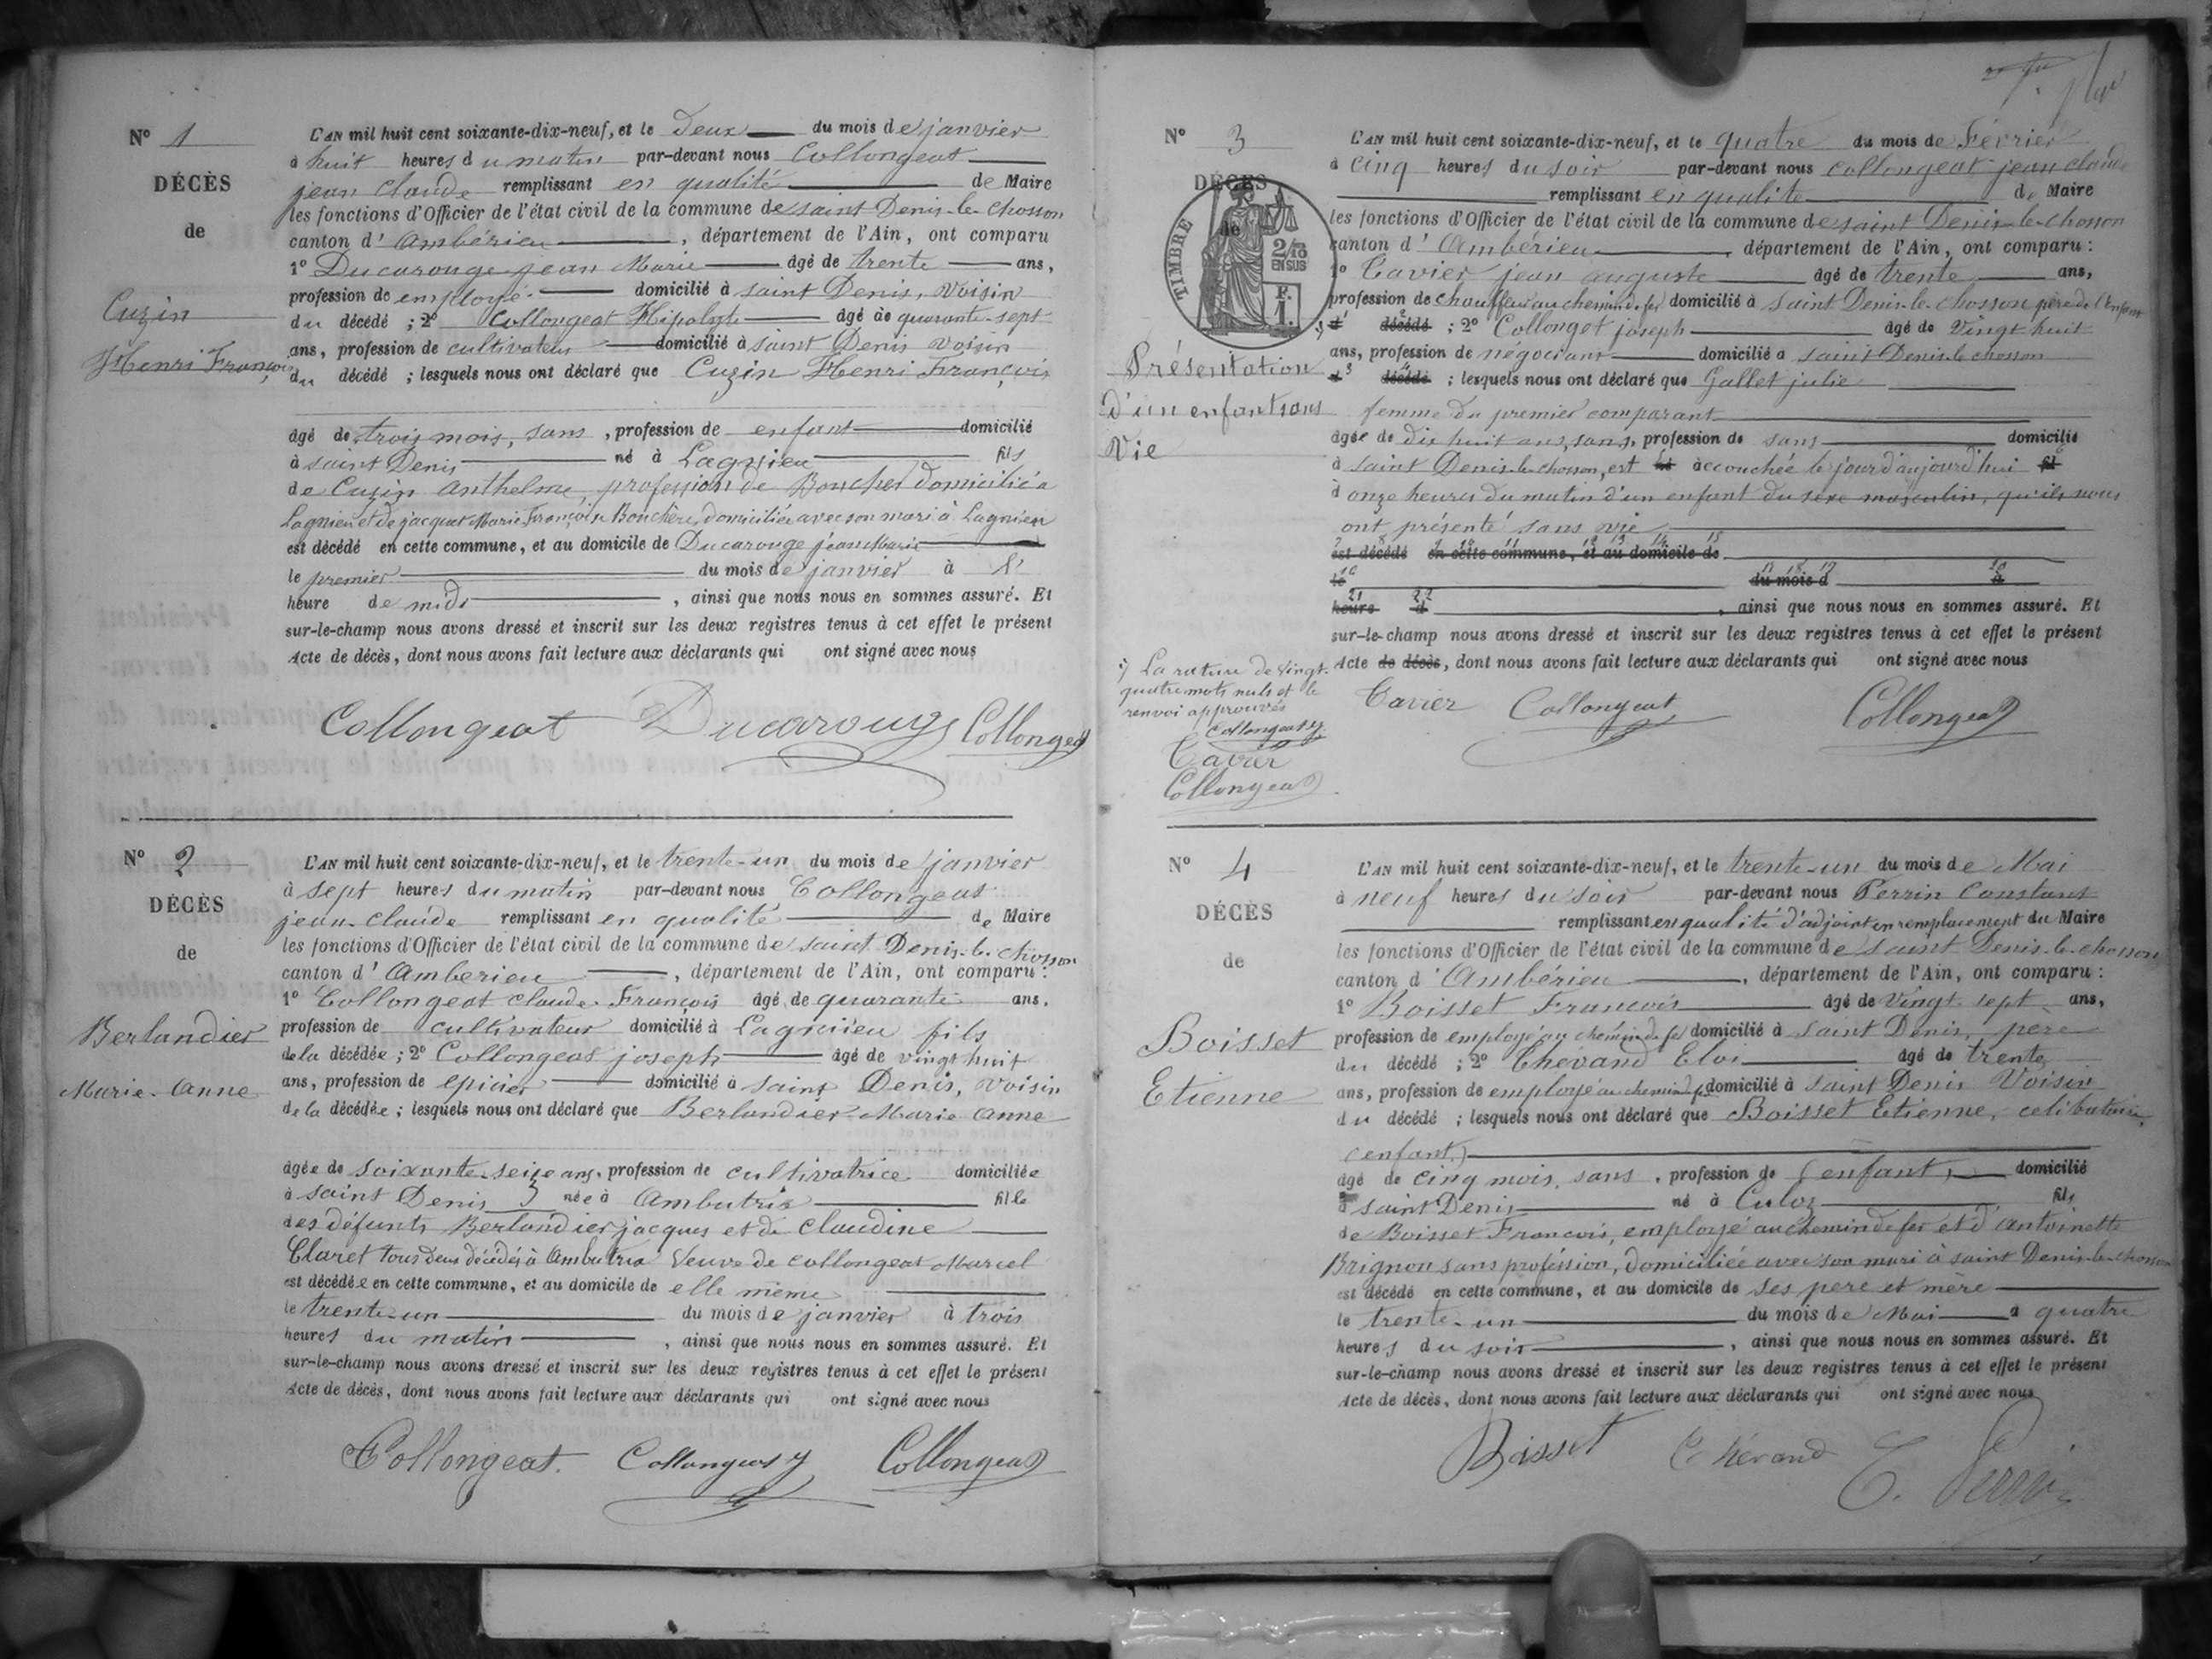 N° 1
DÉCÈS
de
Cuzin
Henri François
L'AN mil huit cent soixante-dix-neuf, et le deux du mois de janvier
à huit heures du matin par-devant nous Collongeat
jean claude remplissant en qualité de Maire
les fonctions d'Officier de l'état civil de la commune de saint Denis-le-chosson
canton d'Ambérieu, département de l'Ain, ont comparu
1° Ducarouge jean Marie âgé de trente ans,
profession de employé domicilié à saint Denis, voisin
du décédé ; 2° Collongeat Hipolyte âgé de quarante-sept
ans, profession de cultivateur domicilié à saint Denis voisin
du décédé ; lesquels nous ont déclaré que Cuzin Henri François
âgé de trois mois, sans, profession de enfant domicilié
à saint Denis né à Lagnieu fils
de Cuzin Anthelme, profession de Boucher domicilié à
Lagnieu et de jacquet Marie Françoise Bouchère, domiciliée avec son mari à Lagnieu
est décédé en cette commune, et au domicile de Ducarouge jean Marie
le premier du mois de janvier à
heure de midi, ainsi que nous nous en sommes assuré. Et
sur-le-champ nous avons dressé et inscrit sur les deux registres tenus à cet effet le présent
Acte de décès, dont nous avons fait lecture aux déclarants qui ont signé avec nous
Collongeat Ducarouge Collongeat
N° 2
DÉCÈS
de
Berlandier
Marie-Anne
L'AN mil huit cent soixante-dix-neuf, et le trente-un du mois de janvier
à sept heures du matin par-devant nous Collongeat
jean-claude remplissant en qualité de Maire
les fonctions d'Officier de l'état civil de la commune de saint Denis-le-chosson
canton d'Amberieu, département de l'Ain, ont comparu :
1° Collongeat claude-François âgé de quarante ans,
profession de cultivateur domicilié à Lagnieu fils
de la décédée ; 2° Collongeat joseph âgé de vingt huit
ans, profession de epicier domicilié à saint Denis, voisin
de la décédée ; lesquels nous ont déclaré que Berlandier Marie Anne
âgée de soixante-seize ans, profession de cultivatrice domiciliée
à saint Denis née à Ambutrix fille
des défunts Berlandier jacques et de claudine
Claret tous deux décédés à Ambutrix Veuve de collongeat Marcel
est décédée en cette commune, et au domicile de elle même
le trente-un du mois de janvier à trois
heures du matin, ainsi que nous nous en sommes assuré. Et
sur-le-champ nous avons dressé et inscrit sur les deux registres tenus à cet effet le présent
Acte de décès, dont nous avons fait lecture aux déclarants qui ont signé avec nous
Collongeat. Collongeat Collongeat
N° 3
DÉCÈS
de
TIMBRE
2/10 EN SUS
Présentation
d'un enfant sans
vie
L'AN mil huit cent soixante-dix-neuf, et le quatre du mois de Février
à cinq heures du soir par-devant nous collongeat jean claude
remplissant en qualité de Maire
les fonctions d'Officier de l'état civil de la commune de saint Denis-le-chosson
canton d'Ambérieu, département de l'Ain, ont comparu :
1° Tavier jean auguste âgé de trente ans,
profession de chauffeur au chemin de fer domicilié à saint Denis-le-chosson père de l'enfant
d décédé ; 2° Collonget joseph âgé de vingt huit
ans, profession de négociant domicilié à saint Denis-le-chosson
d décédé ; lesquels nous ont déclaré que Gallet julie
femme du premier comparant
âgée de dix huit ans, sans, profession de sans domicilié
à saint Denis-le-chosson, est accouchée le jour d'aujourd'hui
à onze heures du matin d'un enfant du sexe masculin, qu'ils nous
ont présenté sans vie
est décédé en cette commune, et au domicile de
le du mois d à
heure d, ainsi que nous nous en sommes assuré. Et
sur-le-champ nous avons dressé et inscrit sur les deux registres tenus à cet effet le présent
Acte de décès, dont nous avons fait lecture aux déclarants qui ont signé avec nous
La rature de vingt-
quatre mots nuls et le
renvoi approuvés
Collongeat
Tavier
Collongeat
Tavier Collongeat Collongeat
N° 4
DÉCÈS
de
Boisset
Etienne
L'AN mil huit cent soixante-dix-neuf, et le trente-un du mois de Mai
à neuf heures du soir par-devant nous Perrin Constant
remplissant en qualité d'adjoint en remplacement du Maire
les fonctions d'Officier de l'état civil de la commune de saint Denis-le-chosson
canton d'Ambérieu, département de l'Ain, ont comparu :
1° Boisset François âgé de vingt sept ans,
profession de employé au chemin de fer domicilié à saint Denis, père
du décédé ; 2° Chevand Eloi âgé de trente
ans, profession de employé au chemin de fer domicilié à saint Denis Voisin
du décédé ; lesquels nous ont déclaré que Boisset Etienne, celibataire,
(enfant)
âgé de cinq mois, sans, profession de (enfant) domicilié
à saint Denis né à Culoz fils
de Boisset François, employé au chemin de fer et d'antoinette
Brignon sans profession, domiciliée avec son mari à saint Denis-le-chosson
est décédé en cette commune, et au domicile de ses pere et mère
le trente-un du mois de Mai à quatre
heures du soir, ainsi que nous nous en sommes assuré. Et
sur-le-champ nous avons dressé et inscrit sur les deux registres tenus à cet effet le présent
Acte de décès, dont nous avons fait lecture aux déclarants qui ont signé avec nous
Boisset Chévand C. Perrin